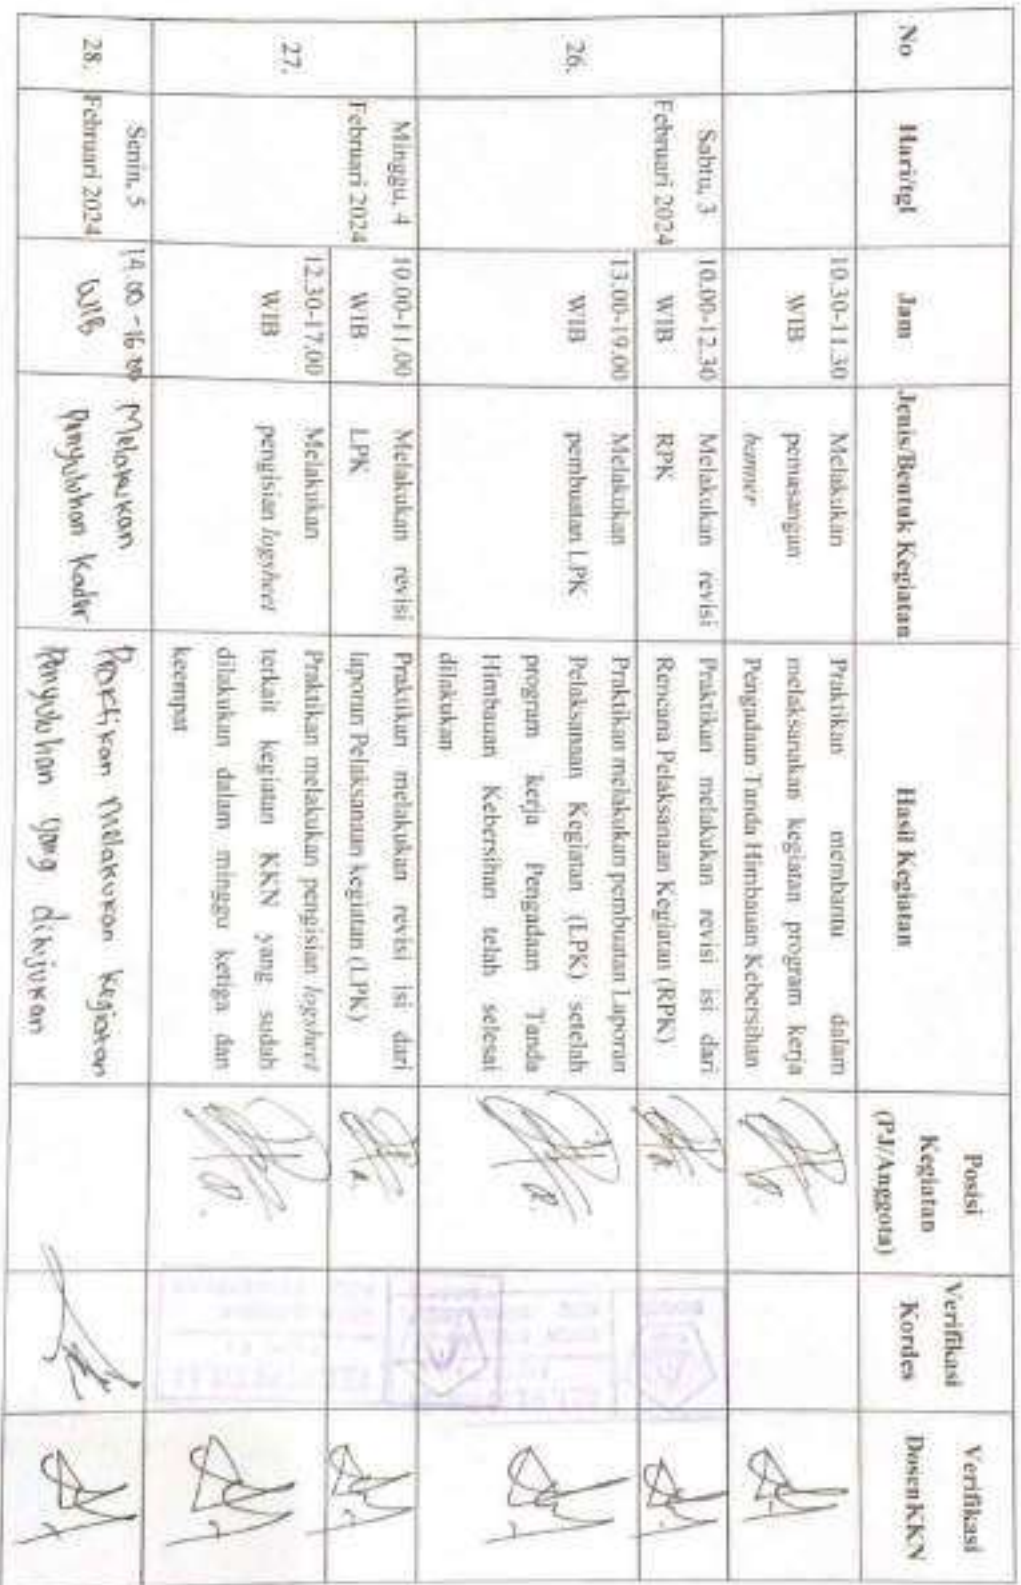 No
Hari/tgl
Jam
Jenis/Bentuk Kegiatan
Hasil Kegiatan
Posisi
Kegiatan
(PJ/Anggota)
Verifikasi
Kordes
Verifikasi
Dosen KKN
10.30-11.30
WIB
Melakukan
pemasangan
banner
Praktikan membantu dalam
melaksanakan kegiatan program kerja
Pengadaan Tanda Himbauan Kebersihan
26.
Sabtu, 3
Februari 2024
10.00-12.30
WIB
Melakukan revisi
RPK
Praktikan melakukan revisi isi dari
Rencana Pelaksanaan Kegiatan (RPK)
13.00-19.00
WIB
Melakukan
pembuatan LPK
Praktikan melakukan pembuatan Laporan
Pelaksanaan Kegiatan (LPK) setelah
program kerja Pengadaan Tanda
Himbauan Kebersihan telah selesai
dilakukan
27.
Minggu, 4
Februari 2024
10.00-11.00
WIB
Melakukan revisi
LPK
Praktikan melakukan revisi isi dari
laporan Pelaksanaan kegiatan (LPK)
12.30-17.00
WIB
Melakukan
pengisian logsheet
Praktikan melakukan pengisian logsheet
terkait kegiatan KKN yang sudah
dilakukan dalam minggu ketiga dan
keempat
28.
Senin, 5
Februari 2024
14.00 - 16.00
WIB
Melakukan
Penyuluhan Kader
Praktikan melakukan kegiatan
Penyuluhan yang ditujukan